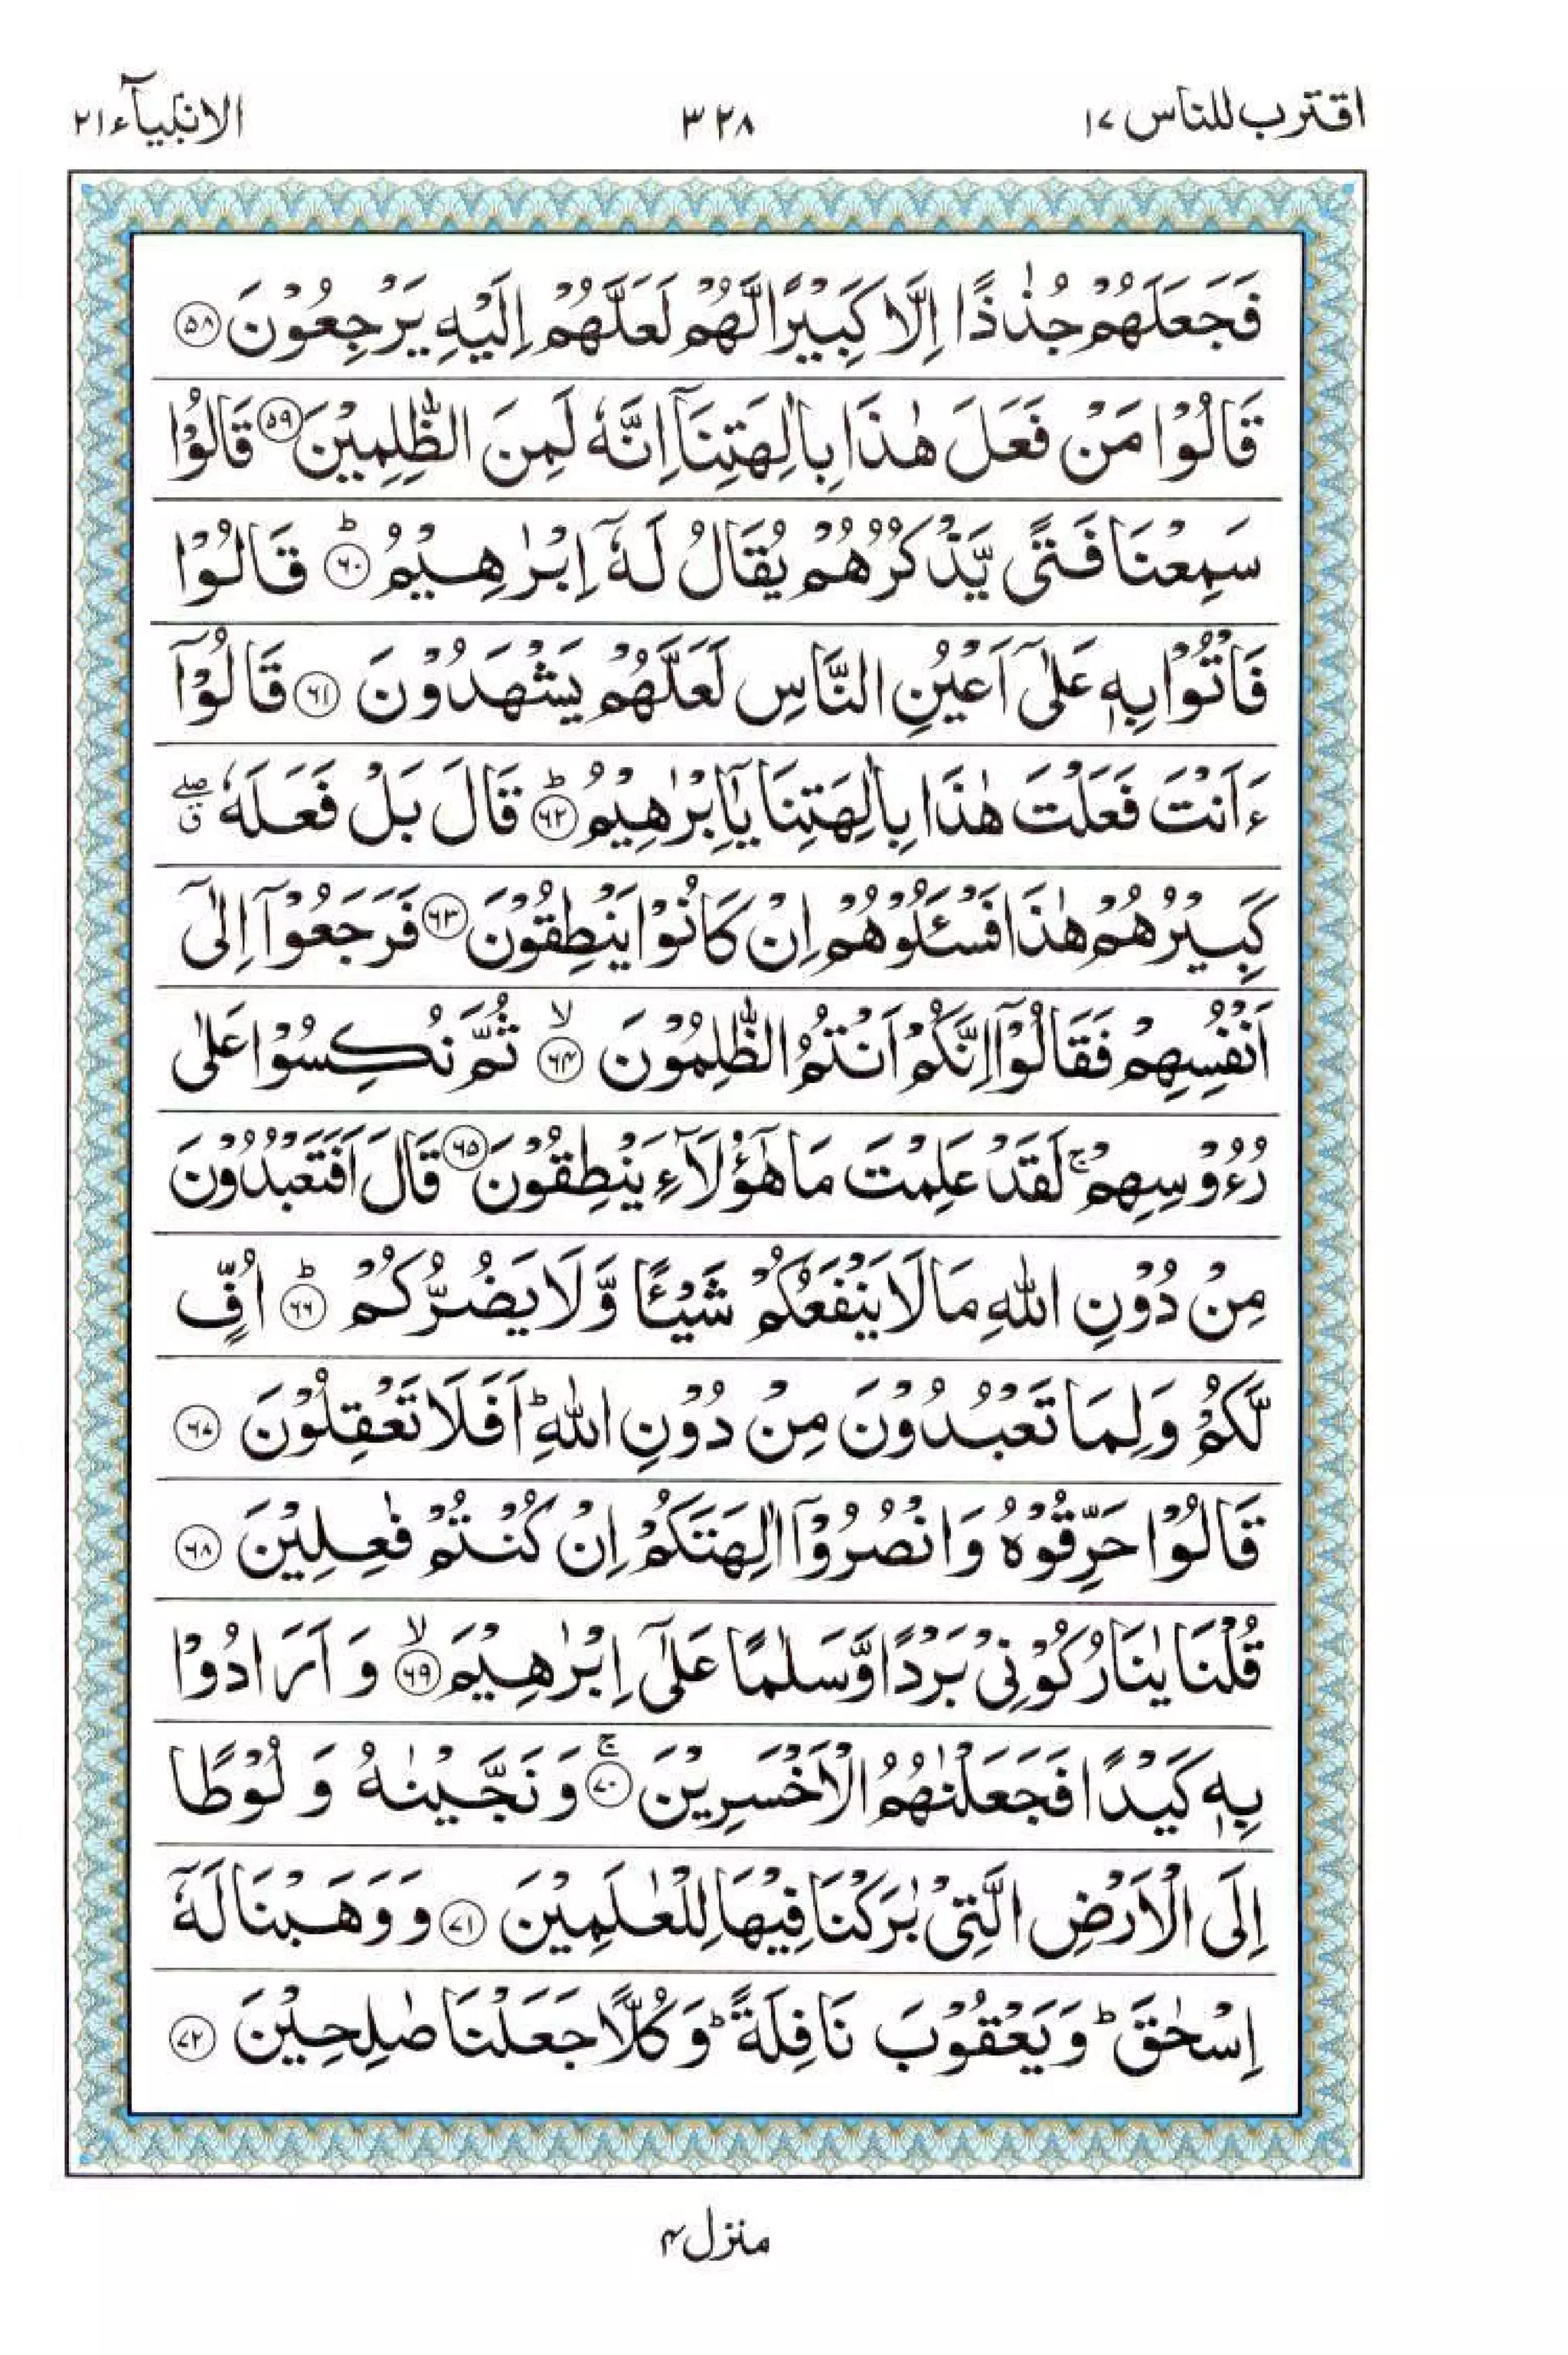 اقترب للناس ١٧
٣٢٨
الانبيآء ٢١
فَجَعَلَهُمْ جُذٰذًا اِلَّا كَبِيْرًا لَّهُمْ لَعَلَّهُمْ اِلَيْهِ يَرْجِعُوْنَ ﴿۵۸﴾
قَالُوْا مَنْ فَعَلَ هٰذَا بِاٰلِهَتِنَاۤ اِنَّهٗ لَمِنَ الظّٰلِمِيْنَ ﴿۵۹﴾ قَالُوْا
سَمِعْنَا فَتًى يَّذْكُرُهُمْ يُقَالُ لَهٗۤ اِبْرٰهِيْمُ ؕ﴿۶۰﴾ قَالُوْا
فَاْتُوْا بِهٖ عَلٰۤى اَعْيُنِ النَّاسِ لَعَلَّهُمْ يَشْهَدُوْنَ ﴿۶۱﴾ قَالُوْۤا
ءَاَنْتَ فَعَلْتَ هٰذَا بِاٰلِهَتِنَا يٰۤاِبْرٰهِيْمُ ؕ﴿۶۲﴾ قَالَ بَلْ فَعَلَهٗ ۖق
كَبِيْرُهُمْ هٰذَا فَسْـَٔلُوْهُمْ اِنْ كَانُوْا يَنْطِقُوْنَ ﴿۶۳﴾ فَرَجَعُوْۤا اِلٰۤى
اَنْفُسِهِمْ فَقَالُوْۤا اِنَّكُمْ اَنْتُمُ الظّٰلِمُوْنَ ۙ﴿۶۴﴾ ثُمَّ نُكِسُوْا عَلٰى
رُءُوْسِهِمْ ۚ لَقَدْ عَلِمْتَ مَا هٰۤؤُلَآءِ يَنْطِقُوْنَ ﴿۶۵﴾ قَالَ اَفَتَعْبُدُوْنَ
مِنْ دُوْنِ اللّٰهِ مَا لَا يَنْفَعُكُمْ شَيْـًٔا وَّلَا يَضُرُّكُمْ ؕ﴿۶۶﴾ اُفٍّ
لَّكُمْ وَلِمَا تَعْبُدُوْنَ مِنْ دُوْنِ اللّٰهِ ؕ اَفَلَا تَعْقِلُوْنَ ﴿۶۷﴾
قَالُوْا حَرِّقُوْهُ وَانْصُرُوْۤا اٰلِهَتَكُمْ اِنْ كُنْتُمْ فٰعِلِيْنَ ﴿۶۸﴾
قُلْنَا يٰنَارُ كُوْنِيْ بَرْدًا وَّسَلٰمًا عَلٰۤى اِبْرٰهِيْمَ ۙ﴿۶۹﴾ وَ اَرَادُوْا
بِهٖ كَيْدًا فَجَعَلْنٰهُمُ الْاَخْسَرِيْنَ ۚ﴿۷۰﴾ وَ نَجَّيْنٰهُ وَ لُوْطًا
اِلَى الْاَرْضِ الَّتِيْ بٰرَكْنَا فِيْهَا لِلْعٰلَمِيْنَ ﴿۷۱﴾ وَ وَهَبْنَا لَهٗۤ
اِسْحٰقَ ؕ وَ يَعْقُوْبَ نَافِلَةً ؕ وَ كُلًّا جَعَلْنَا صٰلِحِيْنَ ﴿۷۲﴾
منزل ۴